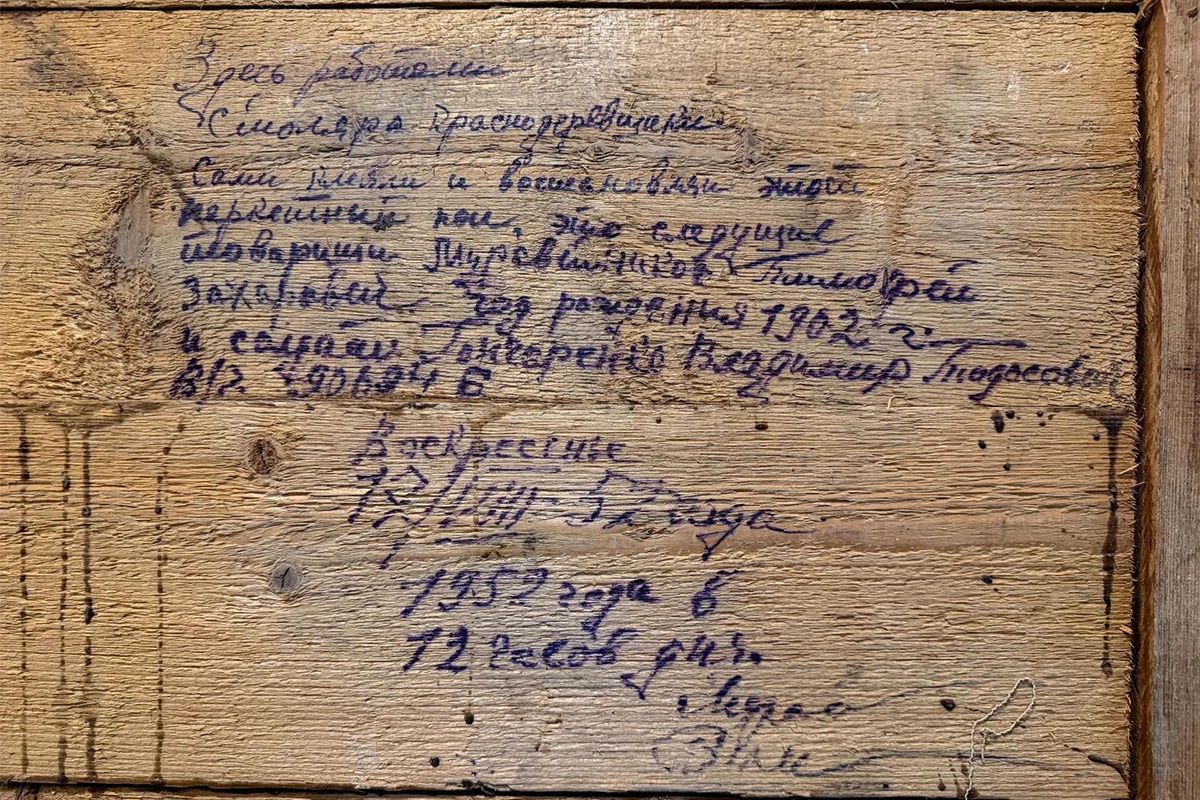 Здесь работали
Столяра Краснодеревщики
Сами клеяли и востановляи этот
паркетный пол, это следущие
товарищи Муравейников Тимофей
Захаровеч Год рождения 1902 г.
и солдат Гончаренко Владимир Тодосович
В/2
Воскресенье
17/VIII-52 года
1952 года в
12 часов дня.